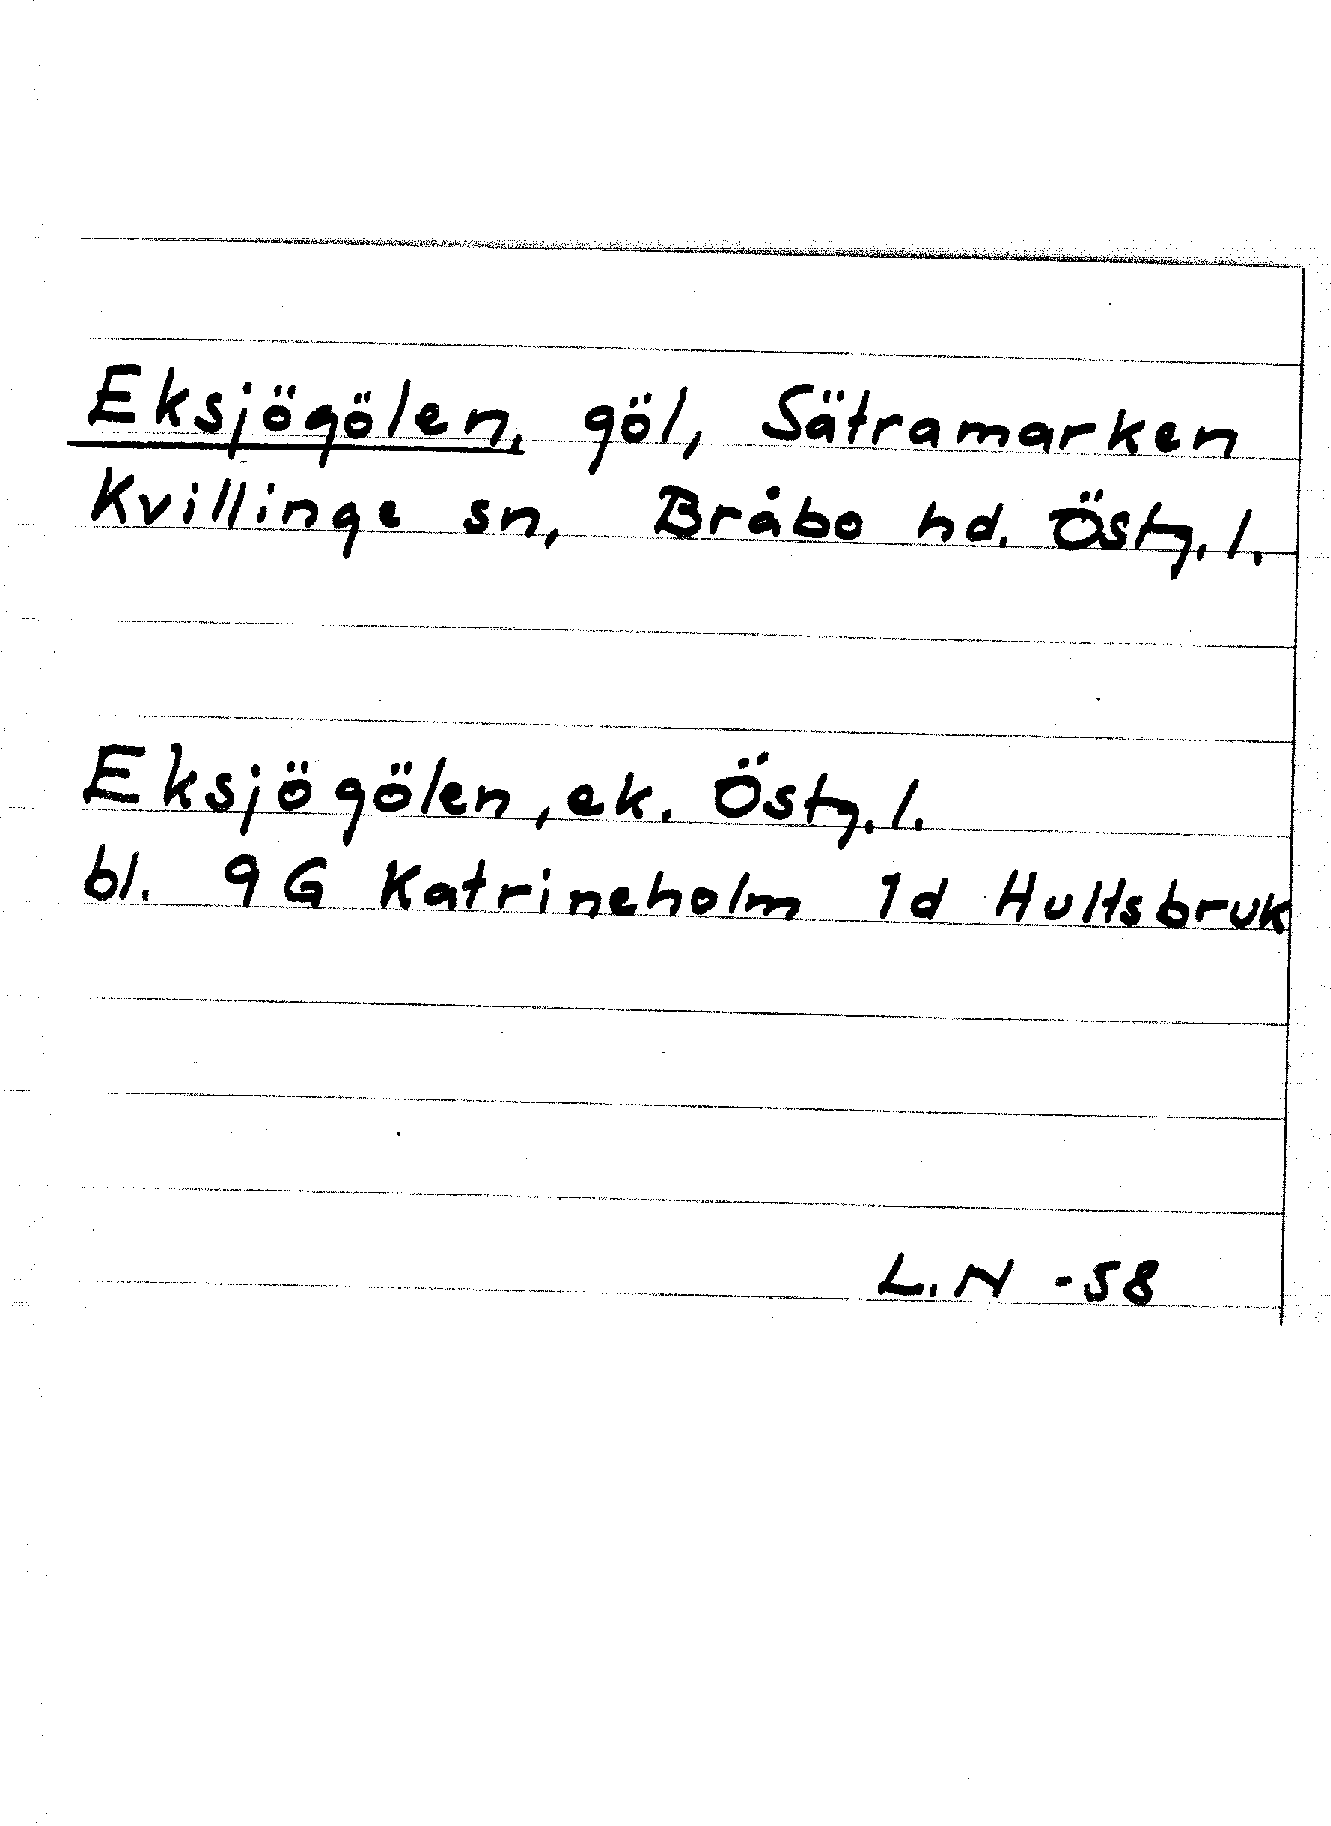 Eksjögölen, göl, Sätramarken
Kvillinge sn, Bråbo hd. Östg. l.
Eksjögölen, ek. Östg. l.
bl. 9 G Katrineholm 1d Hultsbruk
L. N - 58